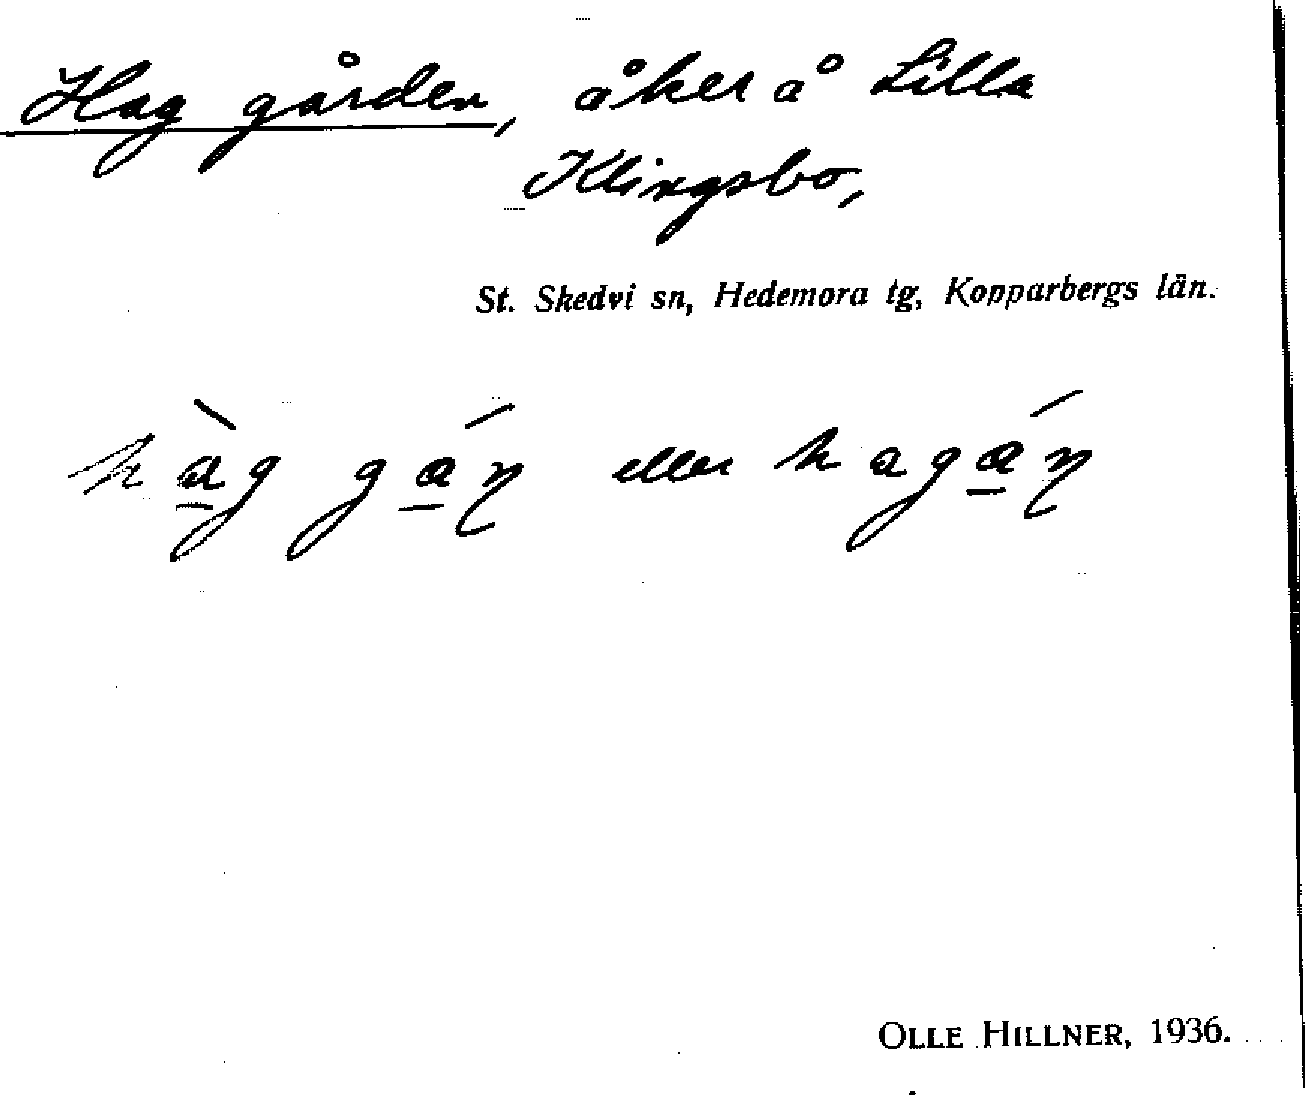 Hag gården, åker å Lilla
Klingsbo,
St. Skedvi sn, Hedemora tg, Kopparbergs län.
hàg gáɳ eller hagáɳ
OLLE HILLNER, 1936.